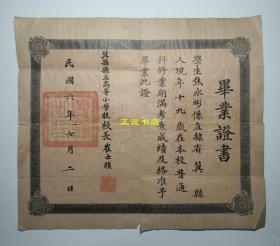 畢業證書
學生焦永彬係直隸省冀縣
人現年十九歲在本校普通
科修業期滿考查成績及格准予
畢業此證
冀縣縣立高等小學校校長崔士楨
民國六年七月二日
正谊书店